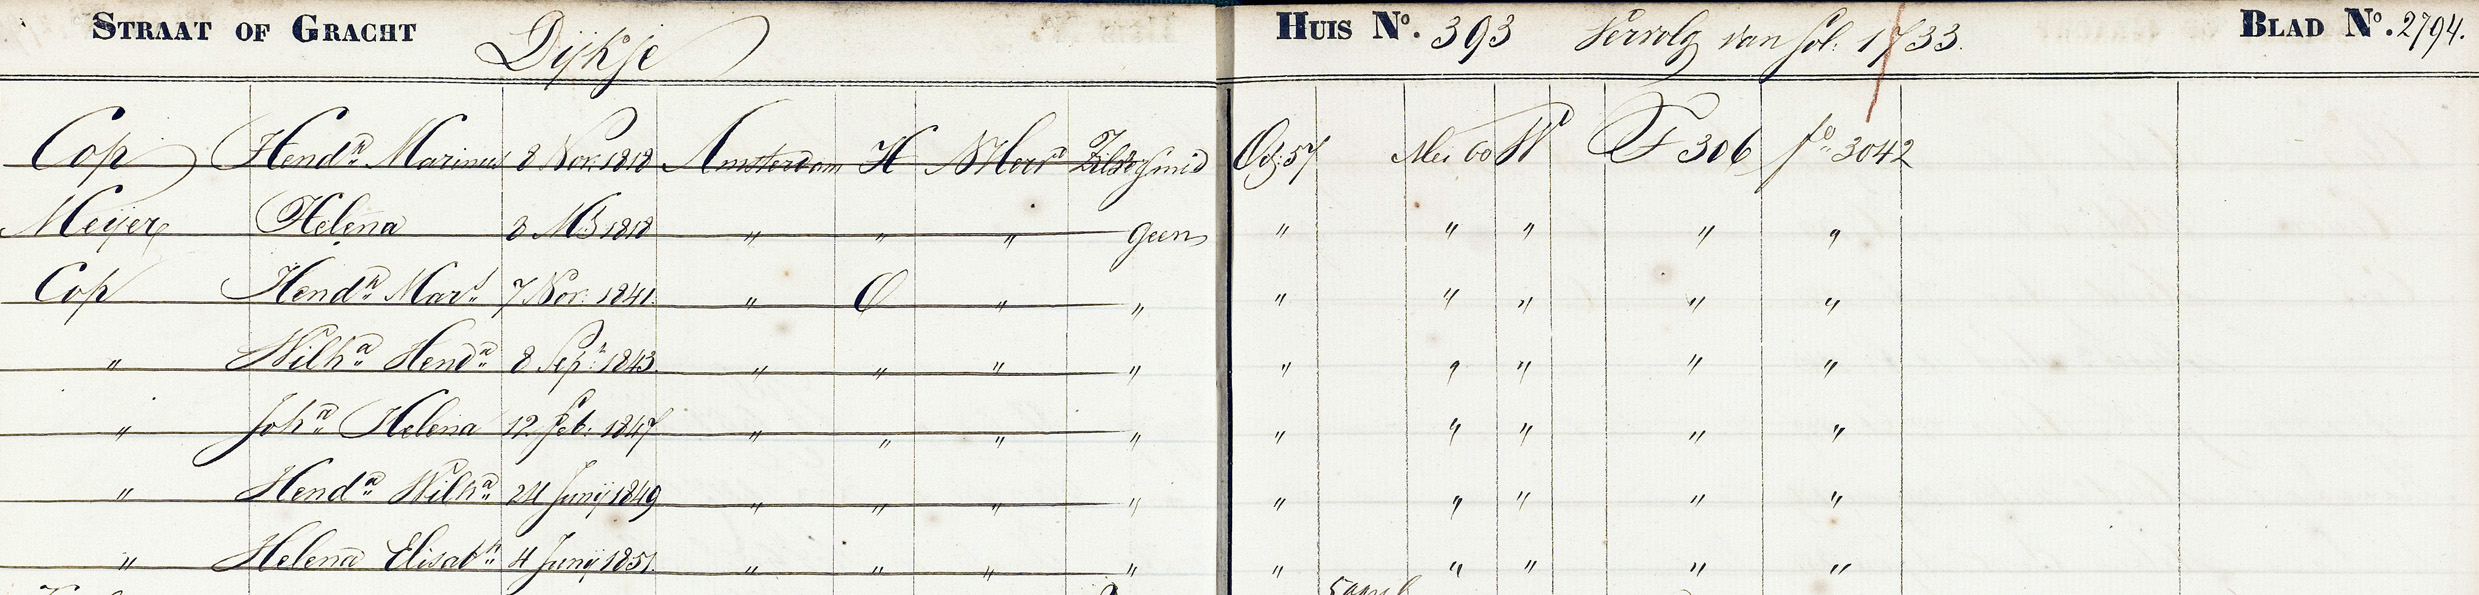 STRAAT OF GRACHT Dijkje HUIS No. 393 Vervolg van fol. 1733. BLAD No. 2794.
Cop Hendk Marinus 8 Nov. 1818 Amsterdam H N Herv Zilversmid 57 Mei 60 W F 306 fo 3042
Meijer Helena 3 1818 " " " geen " " " " "
Cop Hendk Mars 7 Nov. 1841 " O " " " " " " "
" Wilha Henda 8 Sept 1843 " " " " " " " " "
" Joha Helena 12 Feb. 1847 " " " " " " " " "
" Henda Wilha 24 Junij 1849 " " " " " " " " "
" Helena Elisabth 4 Junij 1851 " " " " " " " " "